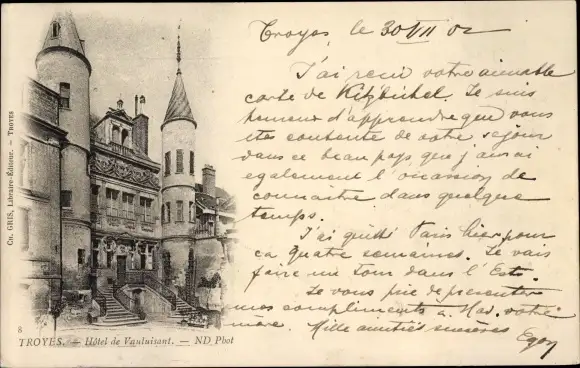 Troyes, le 30 VII 02
J'ai reçu votre aimable
carte de Kitzbichel. Je suis
heureux d'apprendre que vous
êtes contente de votre sejour
dans ce beau pays que j'aurai
egalement l'occasion de
connaitre dans quelque
temps.
J'ai quitté Paris hier pour
ca quatre semaines. Je vais
faire un tour dans l'Est.
Je vous prie de presenter
mes compliments a Mad. votre
mère. Mille amitiés sincères
Egon
CH. GRIS, Libraire-Éditeur. — TROYES
8
TROYES. — Hôtel de Vauluisant. — ND Phot